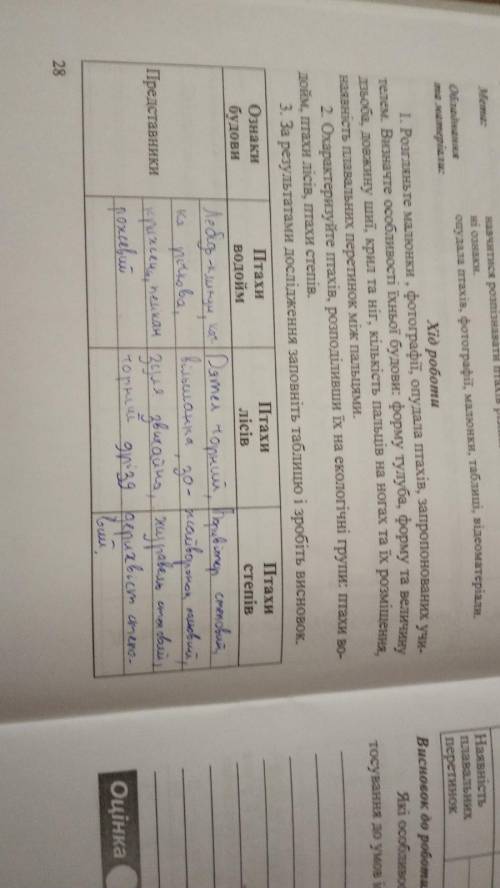 Мета:
навчитися розпізнавати птахів
ні ознаки.
Обладнання
та матеріали:
опудала птахів, фотографії, малюнки, таблиці, відеоматеріали.
Хід роботи
1. Розгляньте малюнки , фотографії, опудала птахів, запропонованих учи-
телем. Визначте особливості їхньої будови: форму тулуба, форму та величину
дзьоба, довжину шиї, крил та ніг, кількість пальців на ногах та їх розміщення,
наявність плавальних перетинок між пальцями.
2. Охарактеризуйте птахів, розподіливши їх на екологічні групи: птахи во-
дойм, птахи лісів, птахи степів.
3. За результатами дослідження заповніть таблицю і зробіть висновок.
Ознаки будови
Птахи водойм
Птахи лісів
Птахи степів
Представники
Лебідь-кликун, ка-
чка річкова,
крижень, пелікан
рожевий
Дятел чорний,
вільшанка, зо-
зуля звичайна,
чорний дрізд
степовий,
журавель степовий,
28
Наявність
плавальних
перетинок
Висновок до роботи
Які особливо
тосування до умов і
Оцінка